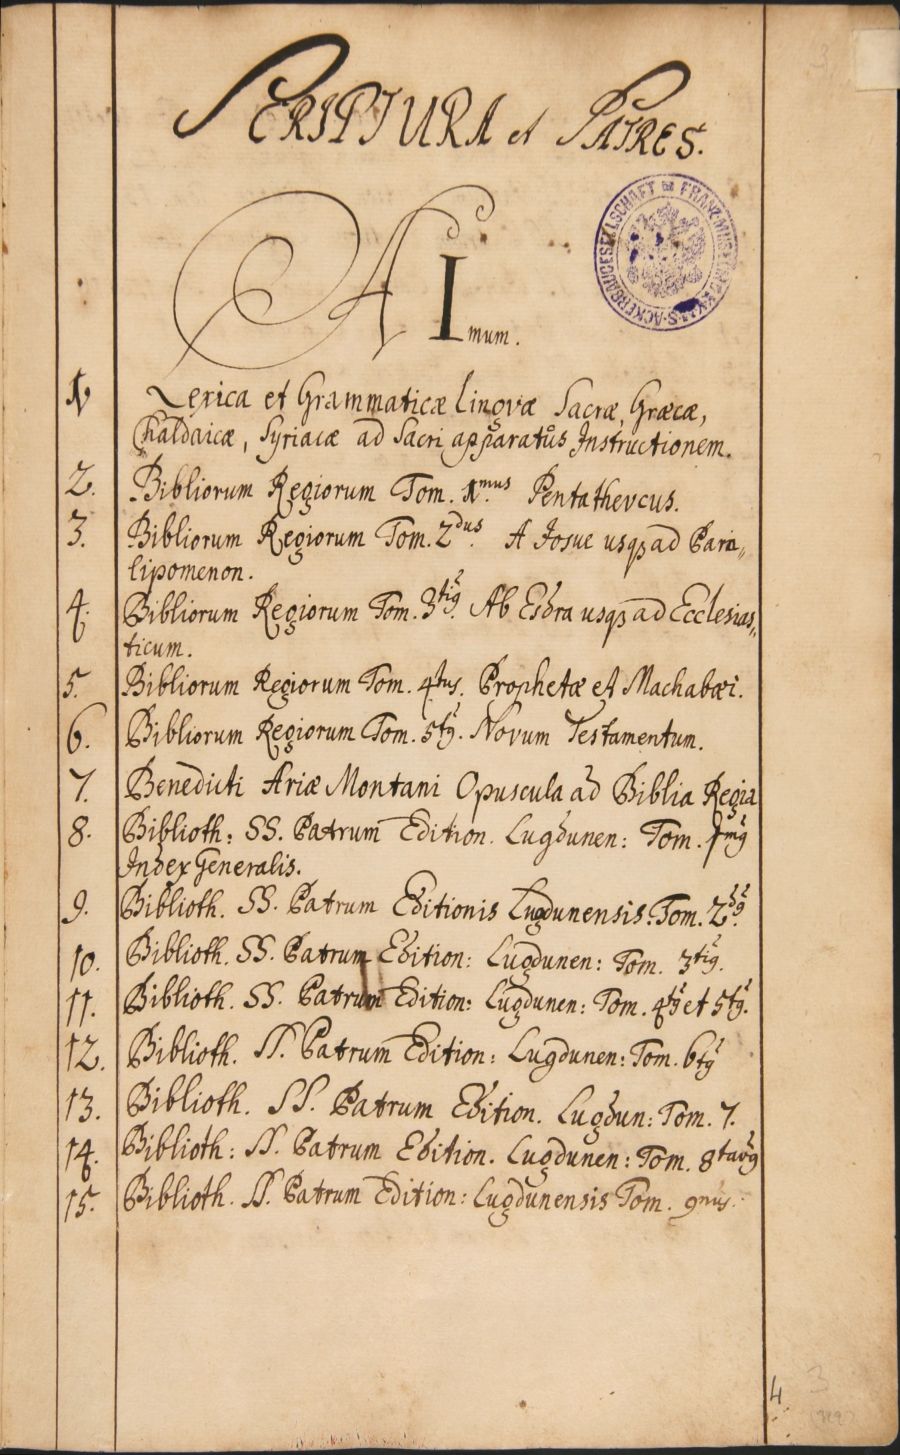 SCRIPTURA et PATRES.
A I mum.
1. Lexica et Grammaticæ Lingvæ Sacræ, Græcæ,
Chaldaicæ, Syriacæ ad Sacri apparatûs Instructionem.
2. Bibliorum Regiorum Tom. 1mus. Pentathevcus.
3. Bibliorum Regiorum Tom. 2dus. A Josue usqz ad Para„
lipomenon.
4. Bibliorum Regiorum Tom. 3tig. Ab Esdra usqz ad Ecclesias„
ticum.
5. Bibliorum Regiorum Tom. 4tus. Prophetæ et Machabæi.
6. Bibliorum Regiorum Tom. 5tg. Novum Testamentum.
7. Benedicti Ariæ Montani Opuscula ad Biblia Regia
8. Biblioth: SS. Patrum Edition. Lugdunen: Tom. 1mg
Index Generalis.
9. Biblioth. SS. Patrum Editionis Lugdunensis. Tom. 2dg.
10. Biblioth. SS. Patrum Edition: Lugdunen: Tom. 3tig.
11. Biblioth. SS. Patrum Edition: Lugdunen: Tom. 4tg et 5tg.
12. Biblioth. SS. Patrum Edition: Lugdunen: Tom. 6tg
13. Biblioth. SS. Patrum Edition. Lugdun: Tom. 7.
14. Biblioth: SS. Patrum Edition. Lugdunen: Tom. 8tavg
15. Biblioth. SS. Patrum Edition: Lugdunensis Tom. 9nus.
4
3